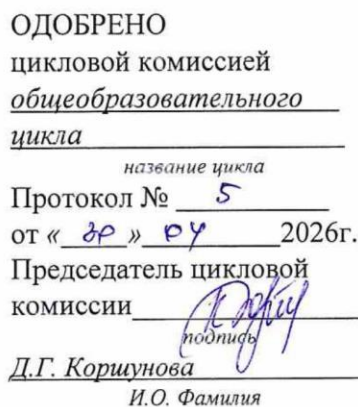 ОДОБРЕНО
цикловой комиссией
общеобразовательного
цикла
название цикла
Протокол № 5
от « » 2026г.
Председатель цикловой
комиссии
подпись
Д.Г. Коршунова
И.О. Фамилия